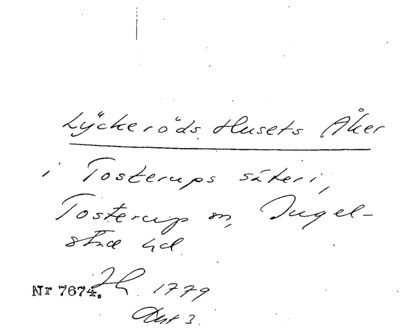 Lÿckeröds Husets Åker
i Tosterups säteri,
Tosterup sn, Ingel-
stad hd.
Nr 7674. 1779
Akt 3